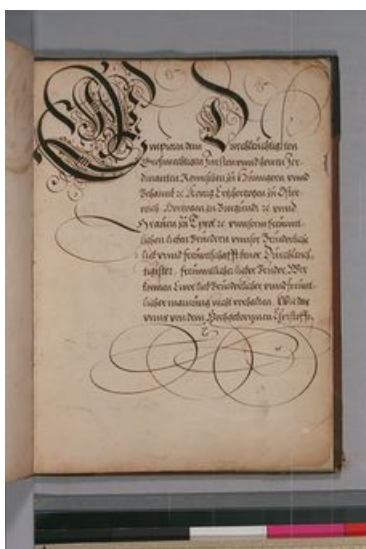 Empieten dem Durchleuchtigisten
Großmechtigen Fürsten vnnd herrn Fer-
dinanden Römischen zu Hunngern vnnd
Behaim ꝛc König Ertzhertzogen zu Öster-
reich Hertzogen zu Burgundi ꝛc vnnd
Grauen zu Tyrol ꝛc vnnserm freundt-
lichen lieben Bruedern vnnser Bruederliche
lieb vnnd
tigister freundtlicher lieber Brueder Wir
konnen Ewer lieb bruederlicher vnnd freundt-
licher mainung nicht verhalten Wie das
vnns von dem Hochgebornnen Christoffn